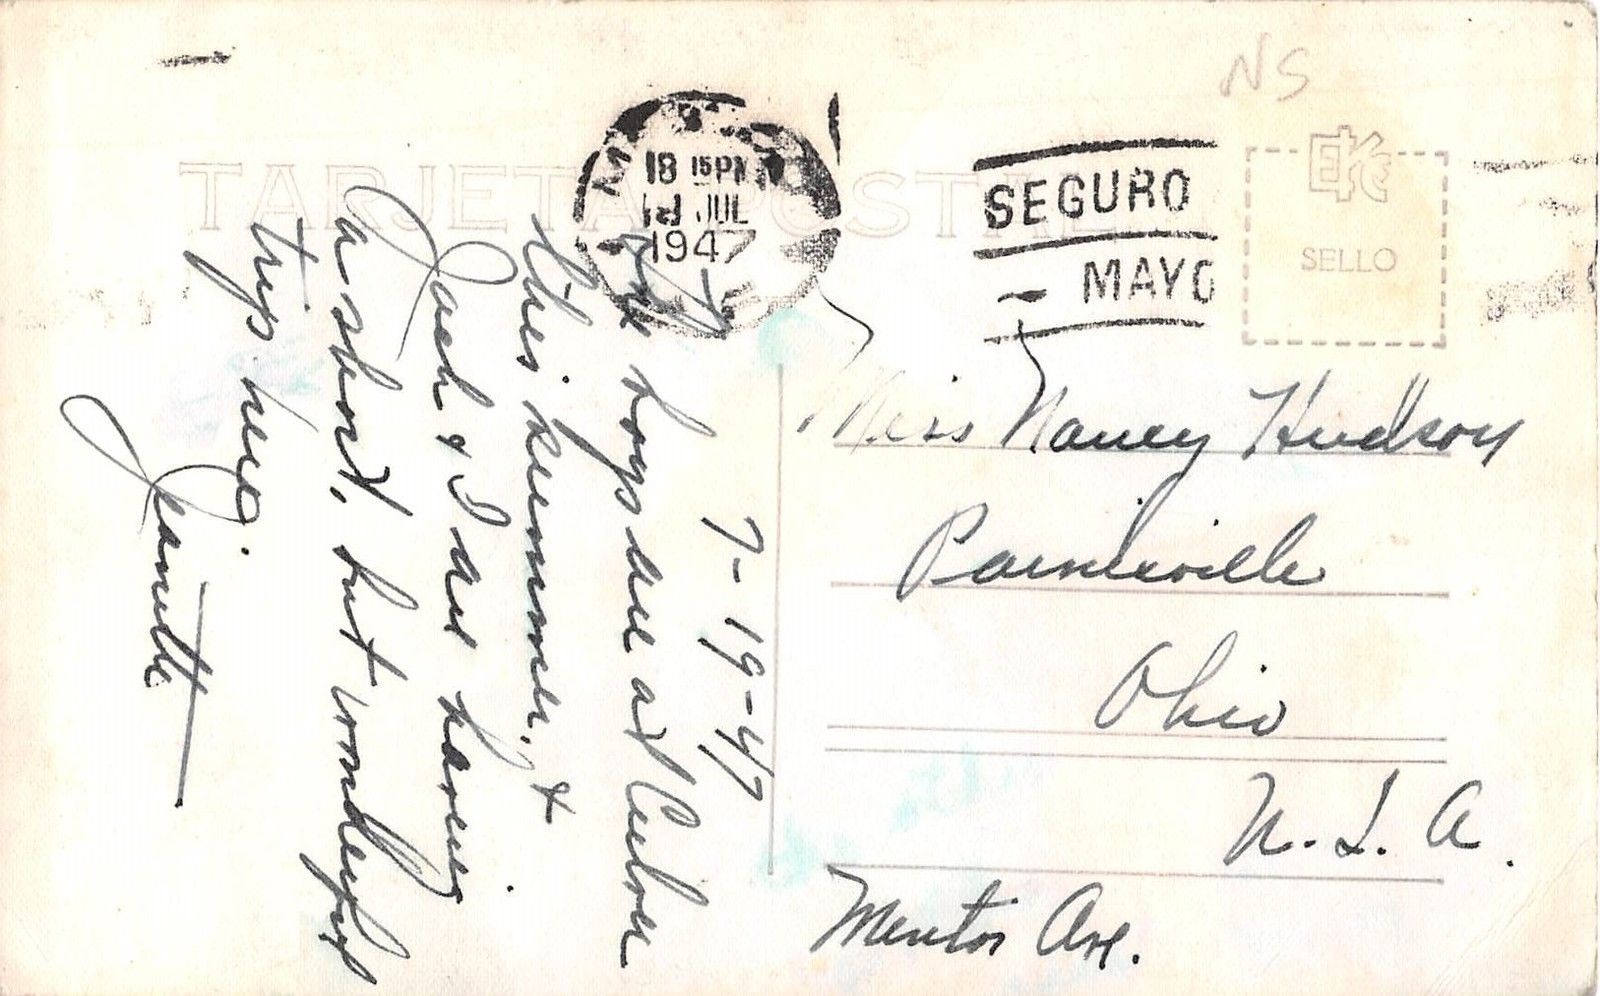 NS
TARJETA POSTAL
18 15 PM
JUL
1947
SEGURO
MAYO
EKC
SELLO
7-19-47
The boys are at Culver
this summer, &
Jack & I are having
a short, but wonderful
trip here.
Jeanette
Miss Nancy Hudson
Painesville
Ohio
U.S.A.
Mentor Ave.